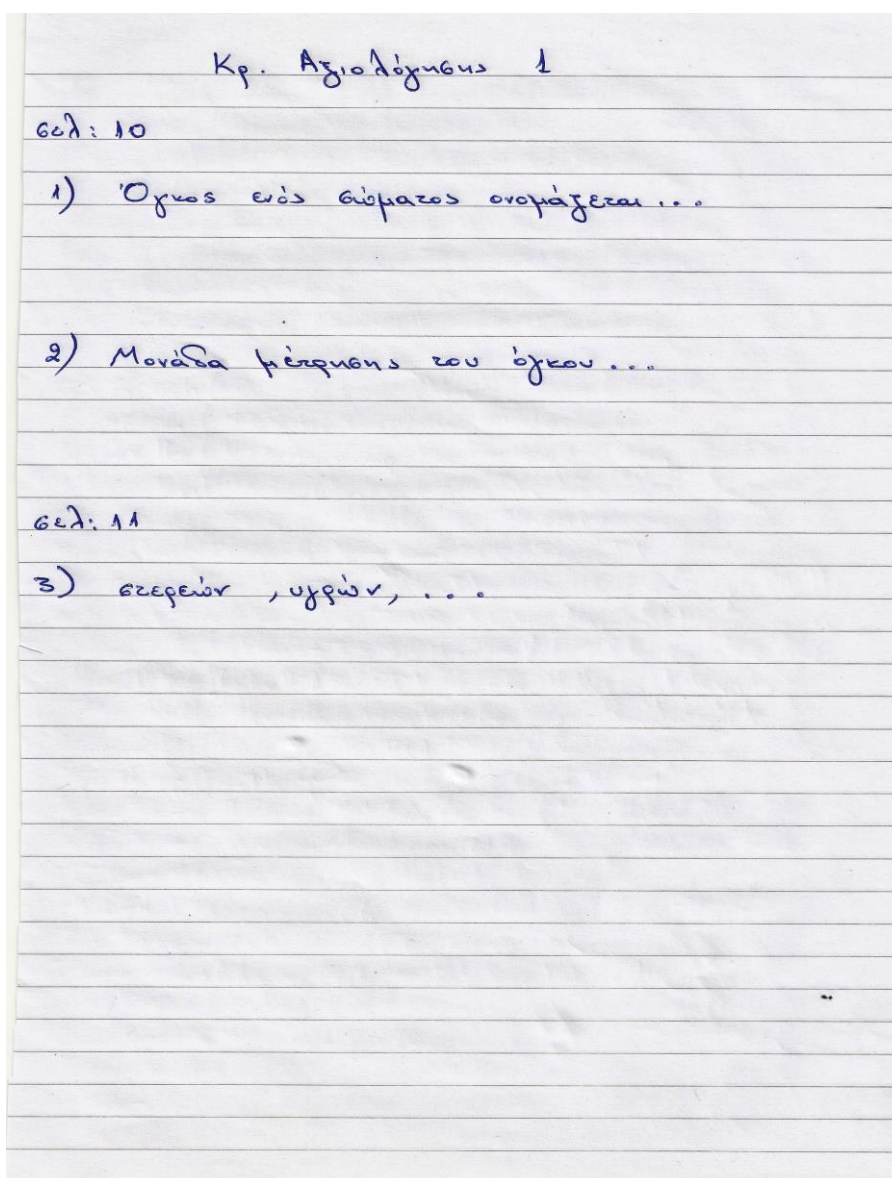 Κρ. Αξιολόγησης 1
σελ: 10
1) Όγκος ενός σώματος ονομάζεται...
2) Μονάδα μέτρησης του όγκου...
σελ: 11
3) στερεών , υγρών, ...